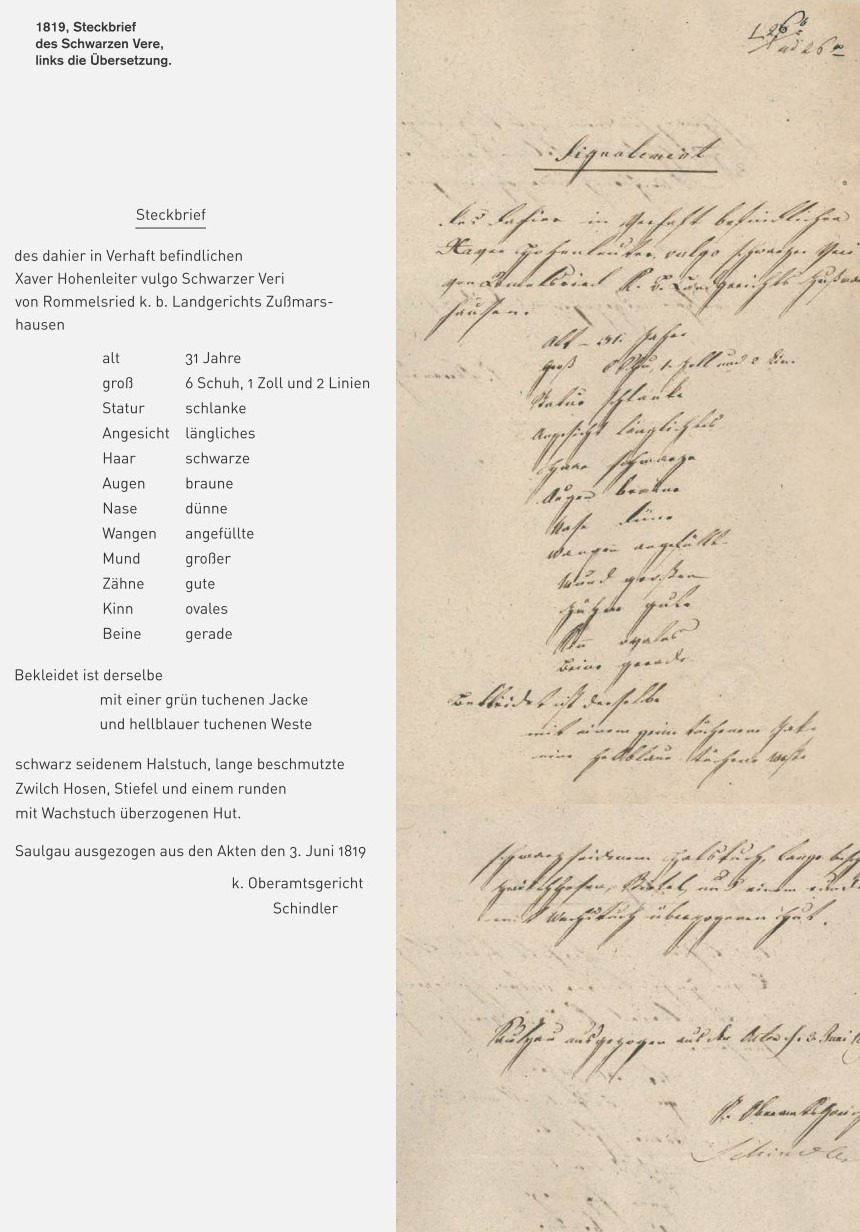 1819, Steckbrief
des Schwarzen Vere,
links die Übersetzung.
Steckbrief
des dahier in Verhaft befindlichen
Xaver Hohenleiter vulgo Schwarzer Veri
von Rommelsried k. b. Landgerichts Zußmars-
hausen
alt 31 Jahre
groß 6 Schuh, 1 Zoll und 2 Linien
Statur schlanke
Angesicht längliches
Haar schwarze
Augen braune
Nase dünne
Wangen angefüllte
Mund großer
Zähne gute
Kinn ovales
Beine gerade
Bekleidet ist derselbe
mit einer grün tuchenen Jacke
und hellblauer tuchenen Weste
schwarz seidenem Halstuch, lange beschmutzte
Zwilch Hosen, Stiefel und einem runden
mit Wachstuch überzogenen Hut.
Saulgau ausgezogen aus den Akten den 3. Juni 1819
k. Oberamtsgericht
Schindler
ad 26
Signalement
des dahier in Verhaft befindlichen
Xaver Hohenleiter vulgo schwarzer Veri
von K. B. Landgerichts
hausen.
alt – 31. Jahre
groß 6 Schu, 1. Zoll und 2 Lin.
Statur schlanke
Angesicht länglichtes
Haare schwarze
Augen braune
Nase dünne
Wangen angefüllt
Mund großen
Zähne gute
Kinn ovales
Beine gerade
Bekleidet ist derselbe
mit einem grün tüchenem
eine hellblau tüchene Weste
schwarz seidenem Halstuch, lange
Zwilchhosen, Stiefel, und einem
mit Wachstuch überzogenen Hut.
Saulgau ausgezogen aus den Akten d. 3. Juni
K. Oberamtsgeric
Schindler